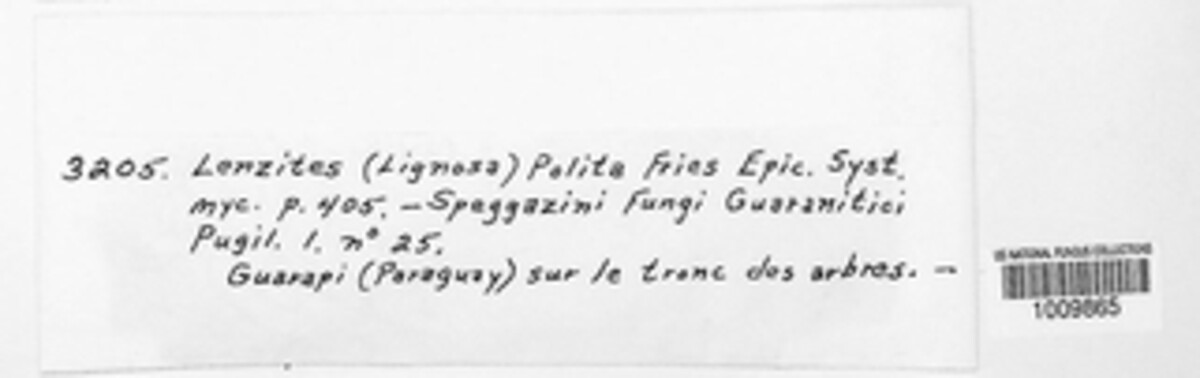 3205. Lenzites (Lignosa) Polita Fries Epic. Syst.
myc. p. 405. — Speggazini Fungi Guaranitici
Pugil. 1. nº 25.
Guarapi (Paraguay) sur le tronc des arbres. —
US NATIONAL FUNGUS COLLECTIONS
1009865